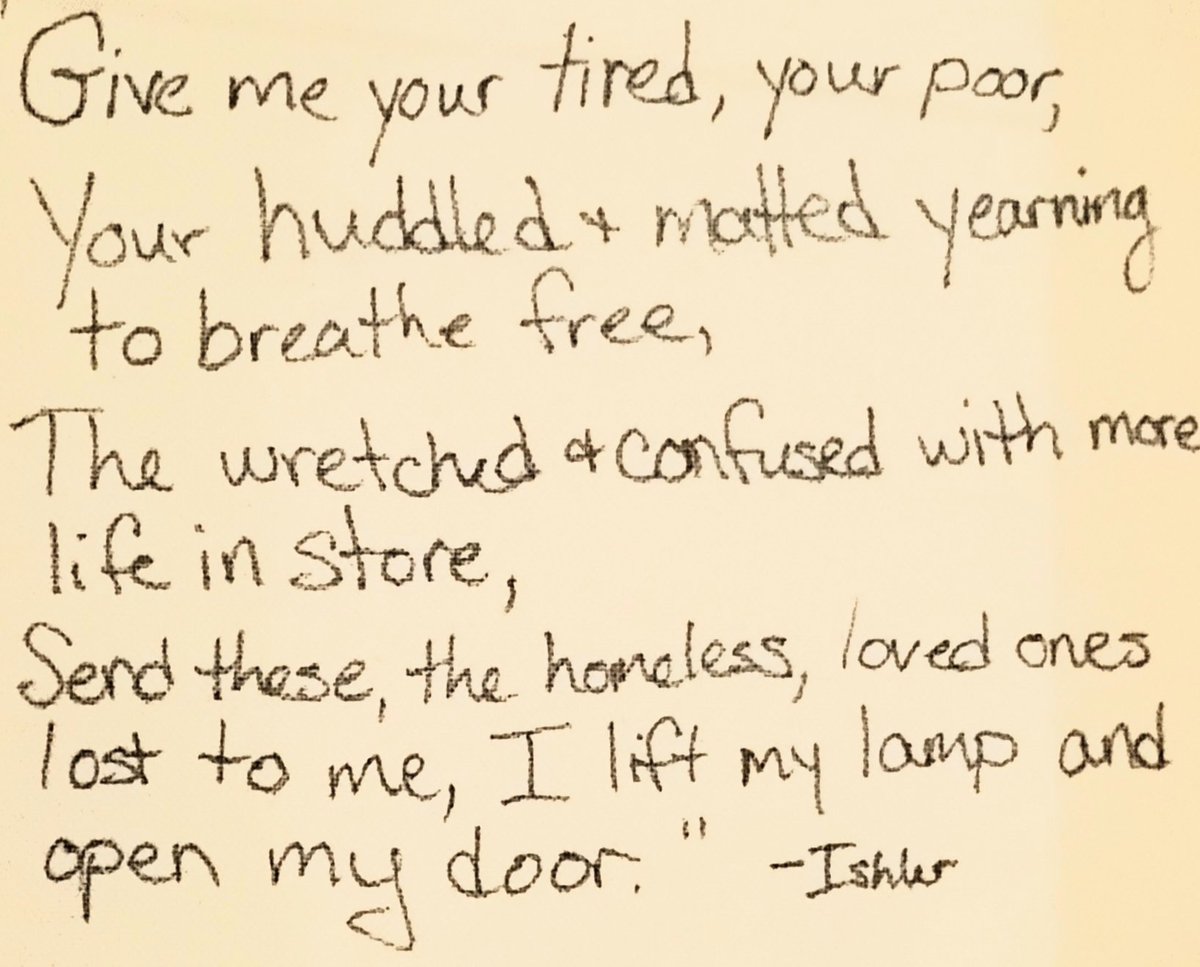 Give me your tired, your poor,
Your huddled + matted yearning
to breathe free,
The wretched + confused with more
life in store,
Send these, the homeless, loved ones
lost to me, I lift my lamp and
open my door." -Ishler